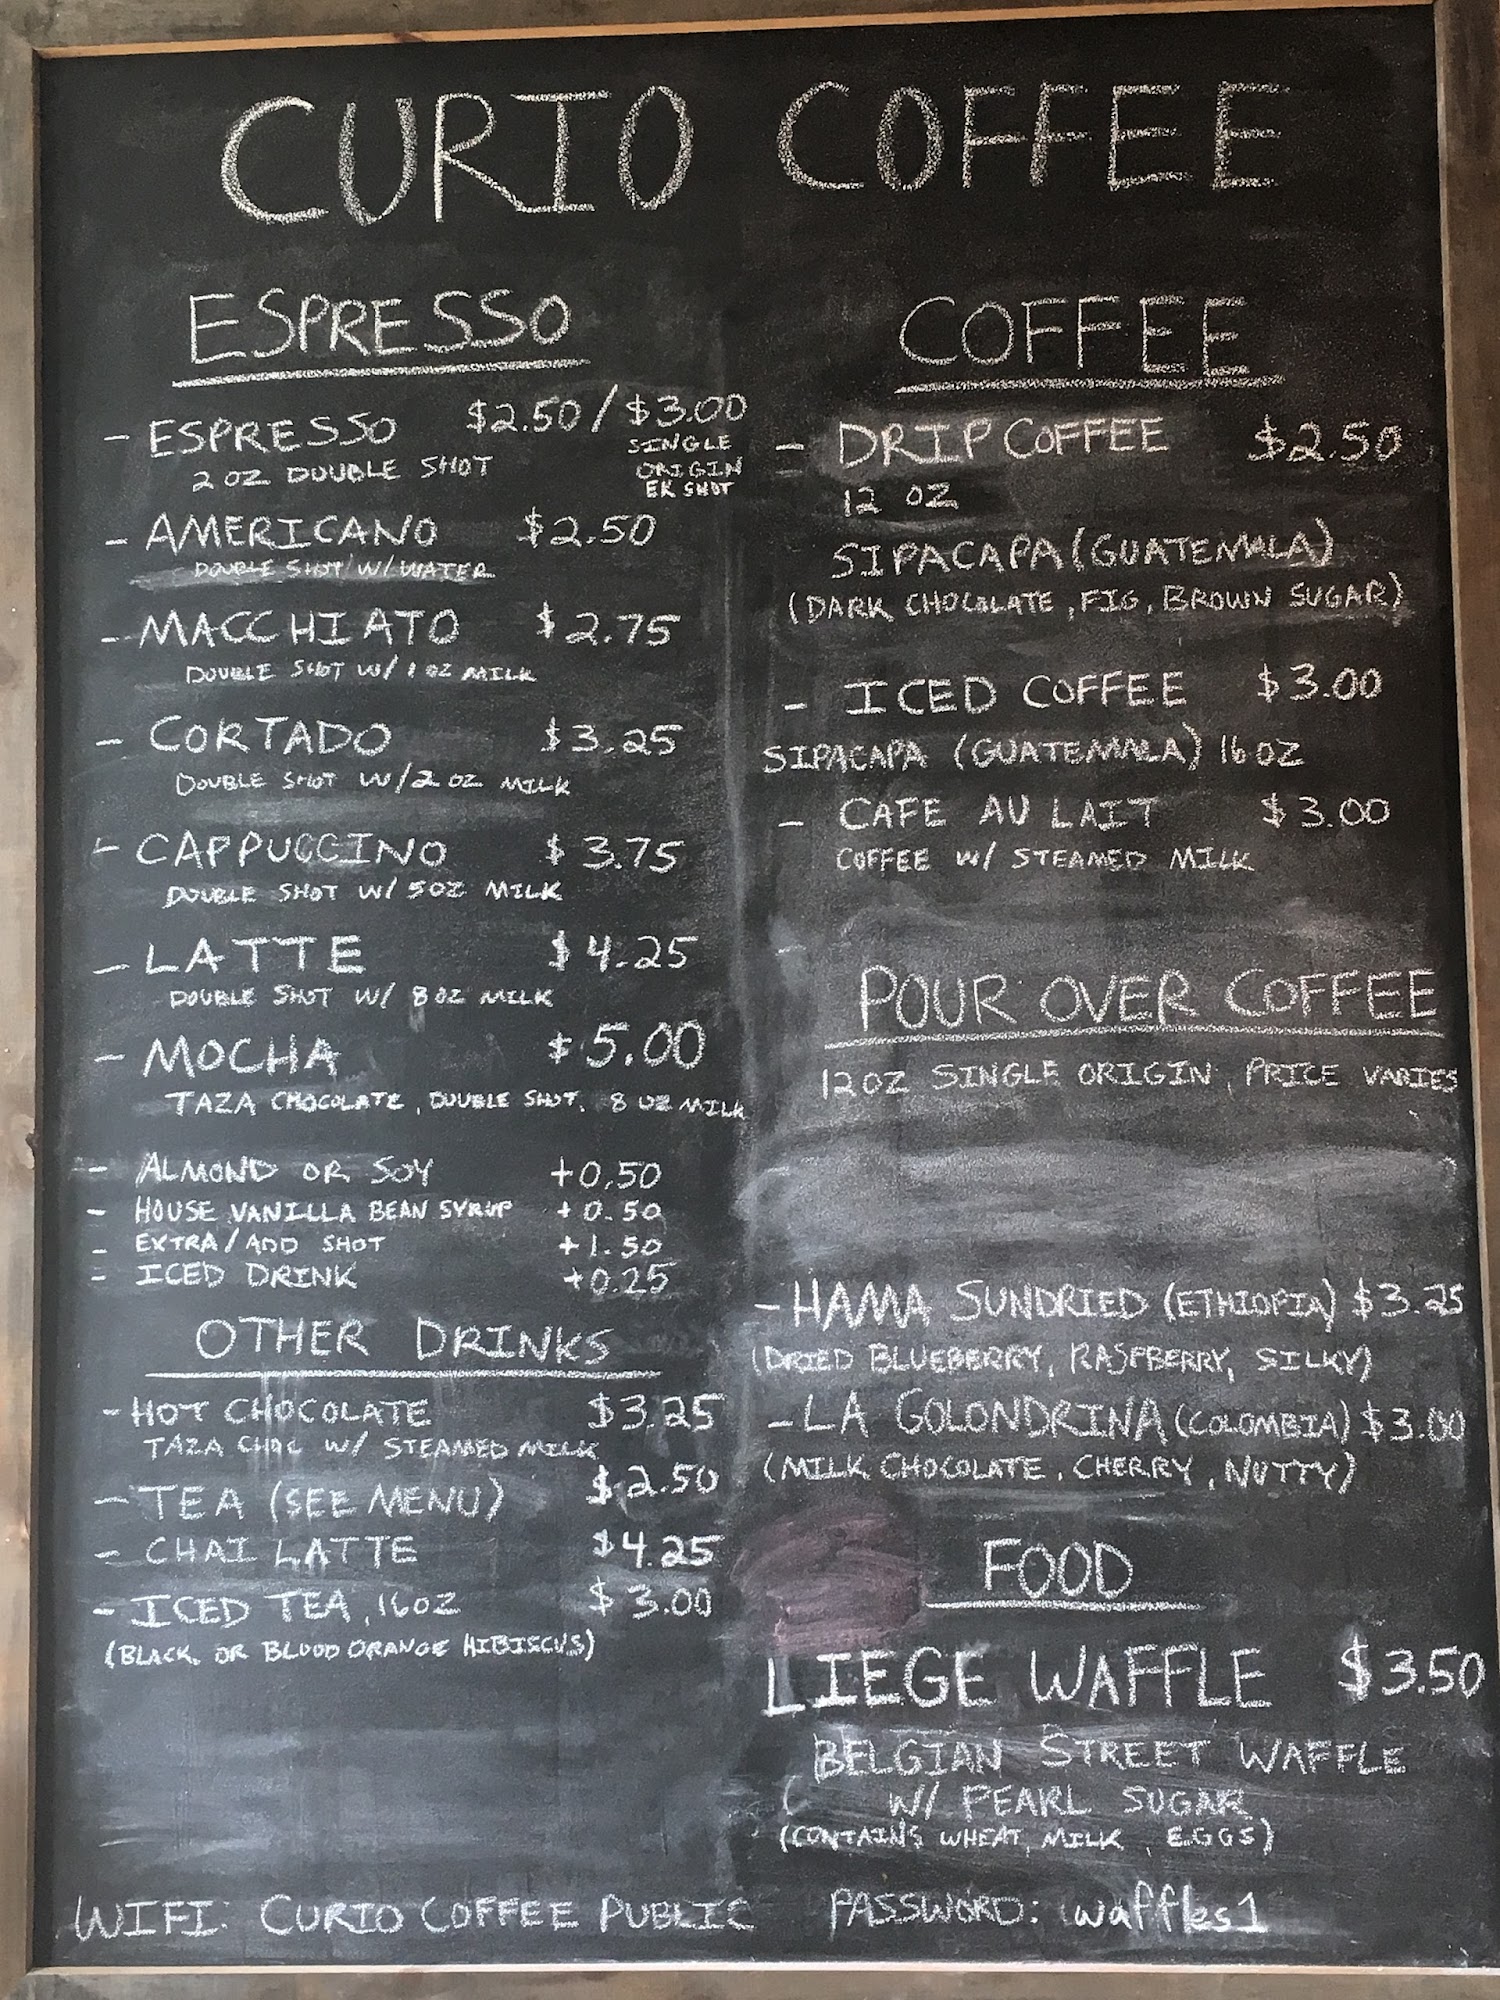 CURIO COFFEE
ESPRESSO
- ESPRESSO $2.50/$3.00
2 OZ DOUBLE SHOT SINGLE
ORIGIN
EK SHOT
- AMERICANO $2.50
DOUBLE SHOT W/WATER
- MACCHIATO $2.75
DOUBLE SHOT W/1 OZ MILK
- CORTADO $3.25
DOUBLE SHOT W/2 OZ MILK
- CAPPUCCINO $3.75
DOUBLE SHOT W/ 5OZ MILK
- LATTE $4.25
DOUBLE SHOT W/ 8 OZ MILK
- MOCHA $5.00
TAZA CHOCOLATE, DOUBLE SHOT, 8 OZ MILK
- ALMOND OR SOY +0.50
- HOUSE VANILLA BEAN SYRUP +0.50
- EXTRA/ADD SHOT +1.50
- ICED DRINK +0.25
OTHER DRINKS
- HOT CHOCOLATE $3.25
TAZA CHOC W/ STEAMED MILK
- TEA (SEE MENU) $2.50
- CHAI LATTE $4.25
- ICED TEA, 16OZ $3.00
(BLACK OR BLOOD ORANGE HIBISCUS)
COFFEE
- DRIP COFFEE $2.50
12 OZ
SIPACAPA (GUATEMALA)
(DARK CHOCOLATE, FIG, BROWN SUGAR)
- ICED COFFEE $3.00
SIPACAPA (GUATEMALA) 16 OZ
- CAFE AU LAIT $3.00
COFFEE W/ STEAMED MILK
-
POUR OVER COFFEE
12 OZ SINGLE ORIGIN, PRICE VARIES
- HAMA SUNDRIED (ETHIOPIA) $3.25
(DRIED BLUEBERRY, RASPBERRY, SILKY)
- LA GOLONDRINA (COLOMBIA) $3.00
(MILK CHOCOLATE, CHERRY, NUTTY)
FOOD
LIEGE WAFFLE $3.50
BELGIAN STREET WAFFLE
W/ PEARL SUGAR
(CONTAINS WHEAT, MILK, EGGS)
WIFI: CURIO COFFEE PUBLIC PASSWORD: waffles1